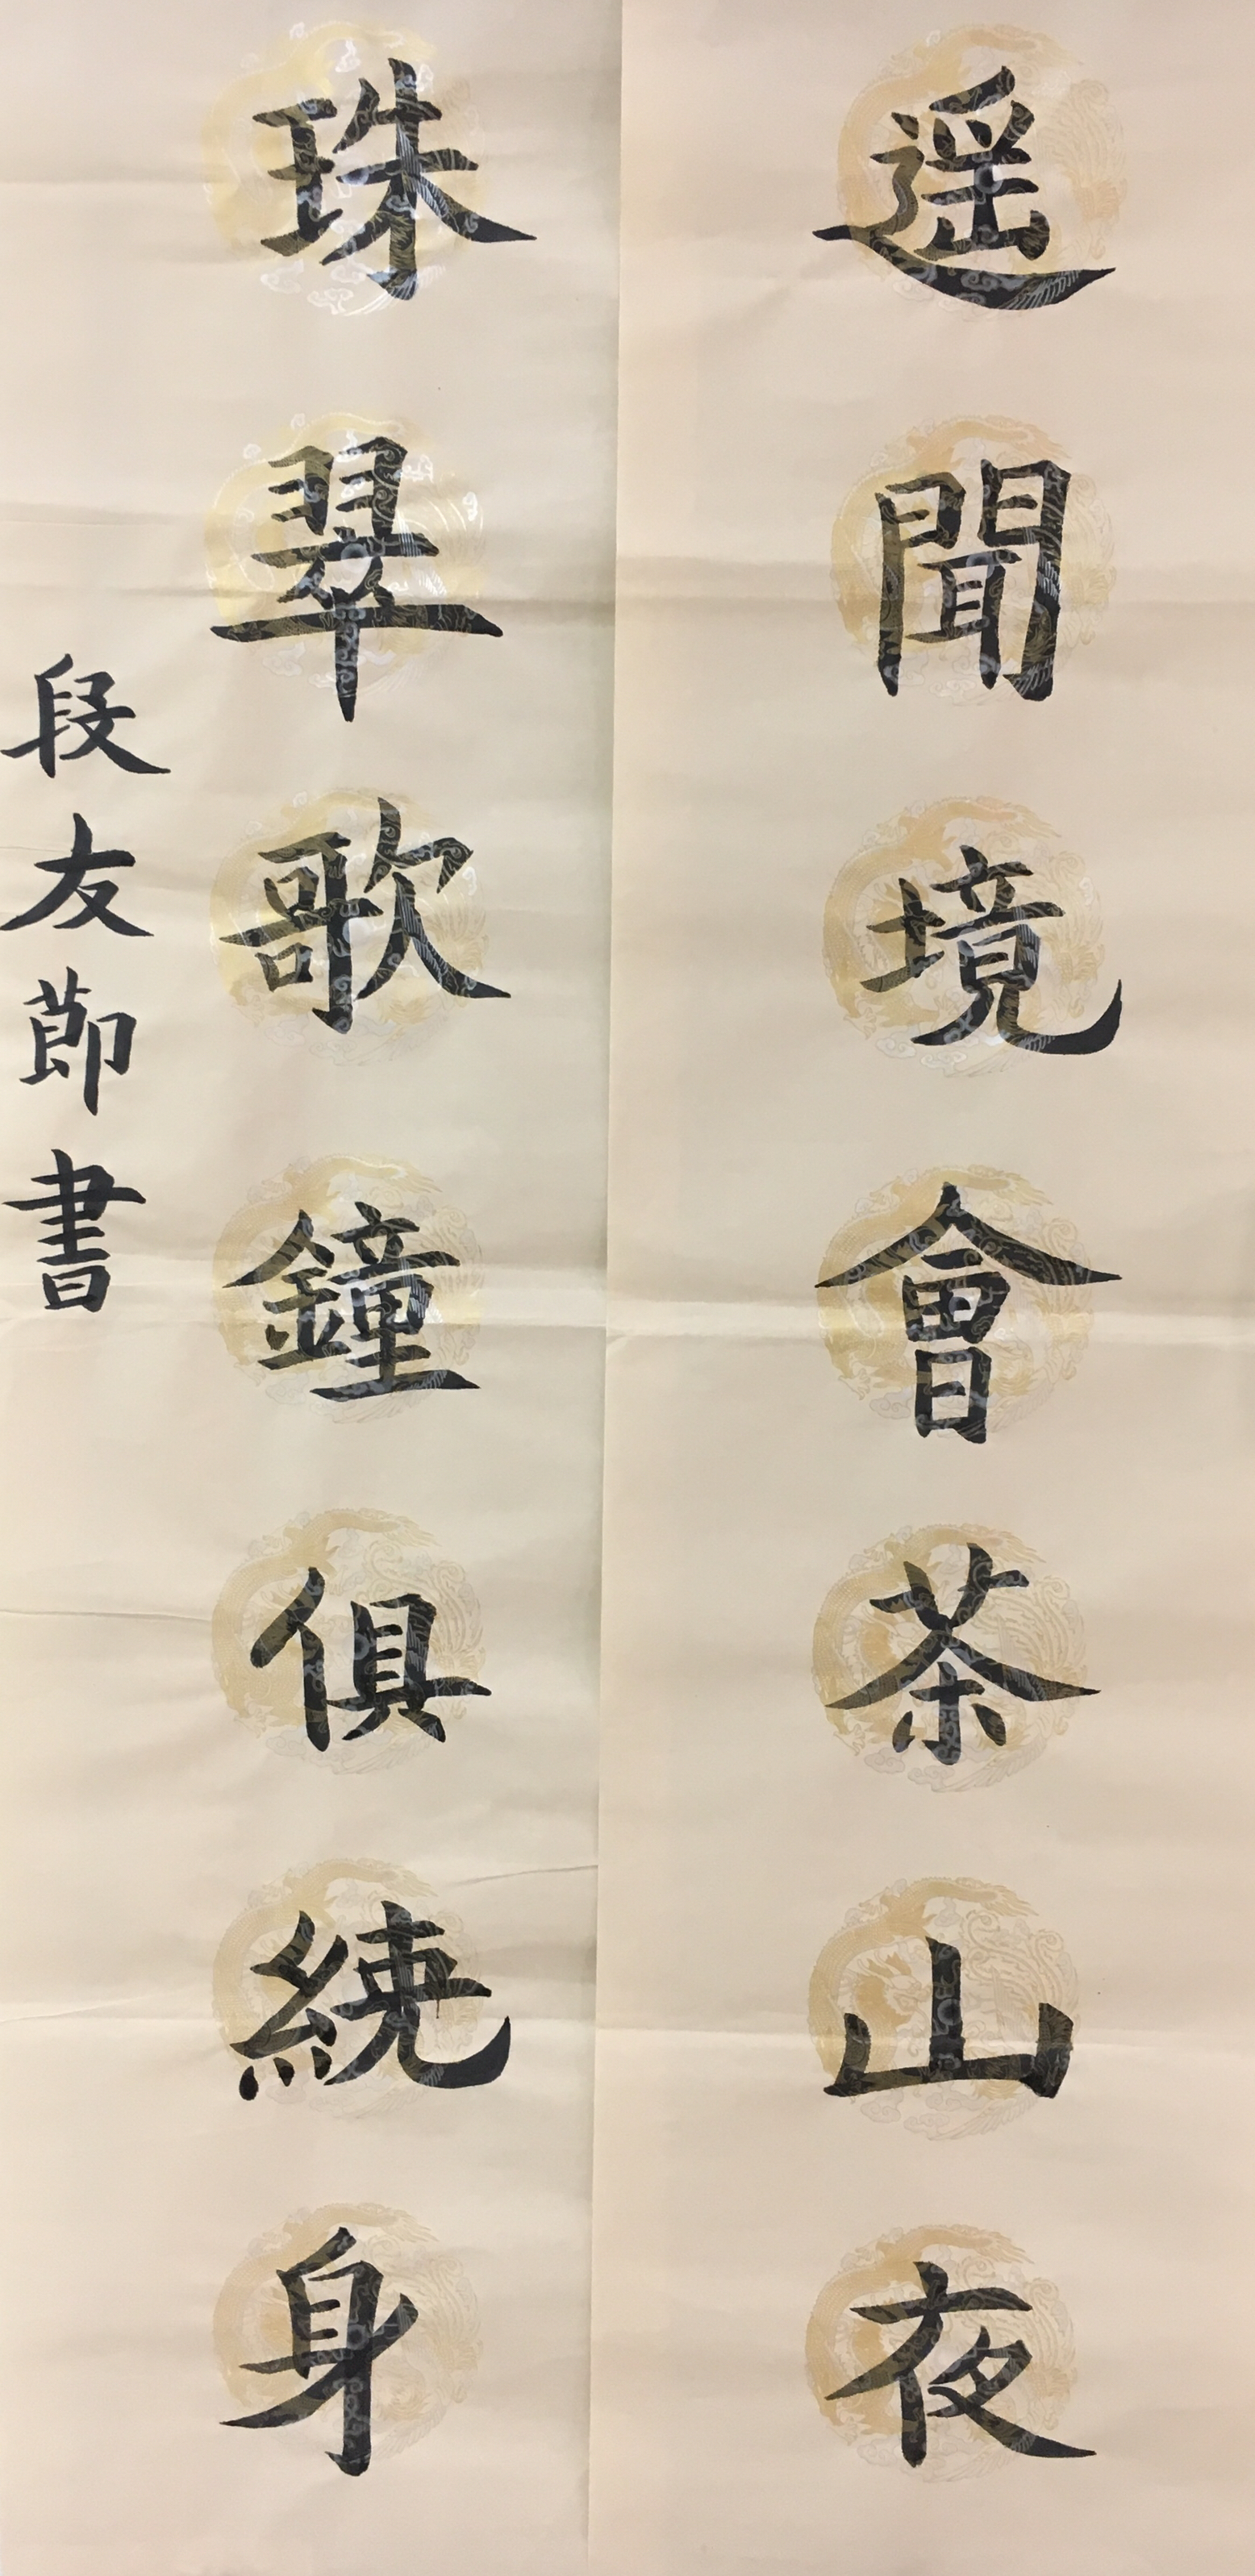 遥聞境會茶山夜
珠翠歌鐘俱繞身
段友節書